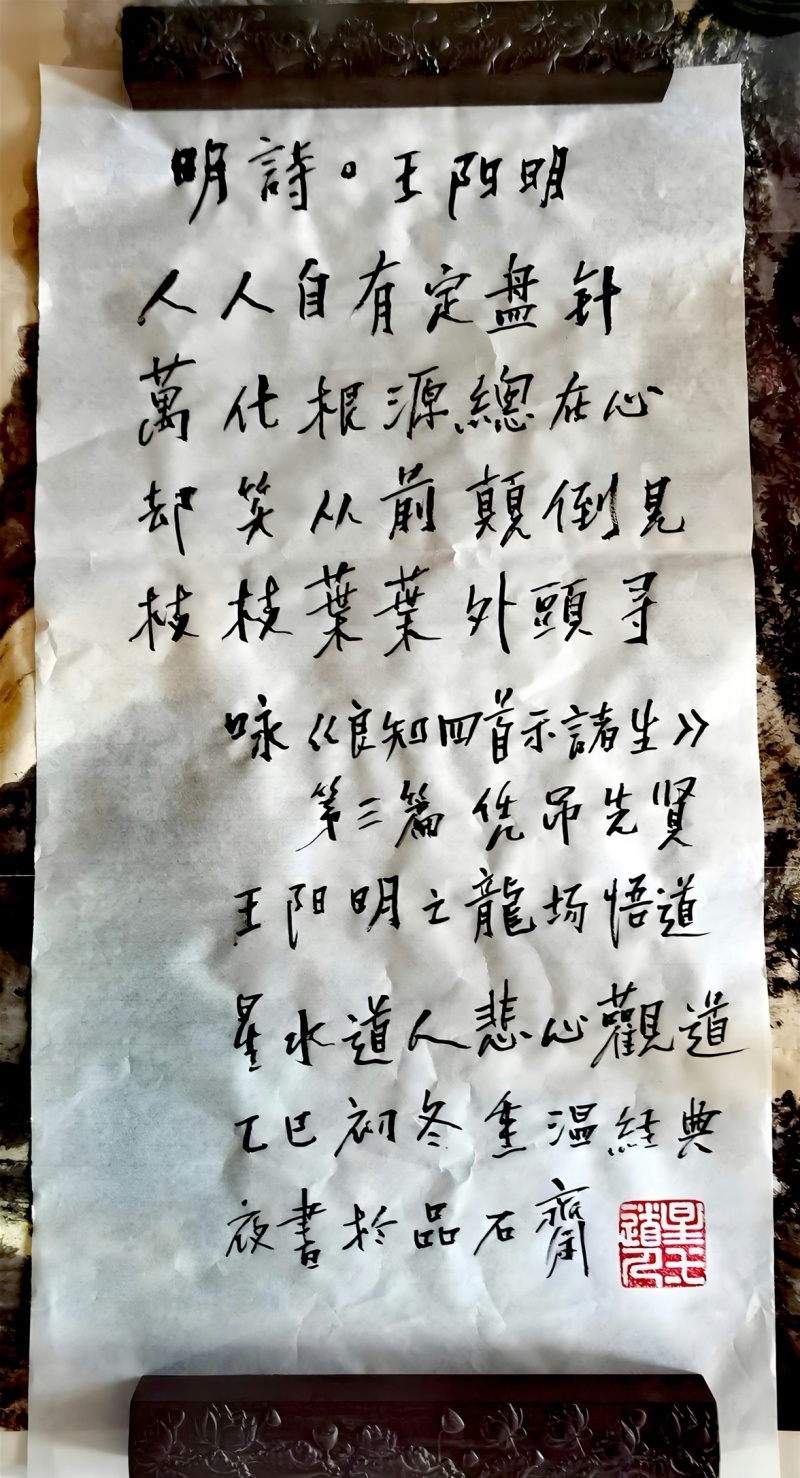 明詩。王阳明
人人自有定盘針
萬化根源總在心
却笑从前顛倒見
枝枝葉葉外頭寻
咏《良知四首示諸生》
第三篇凭吊先贤
王阳明之龍场悟道
星水道人悲心觀道
乙巳初冬重温経典
夜書於品石齋